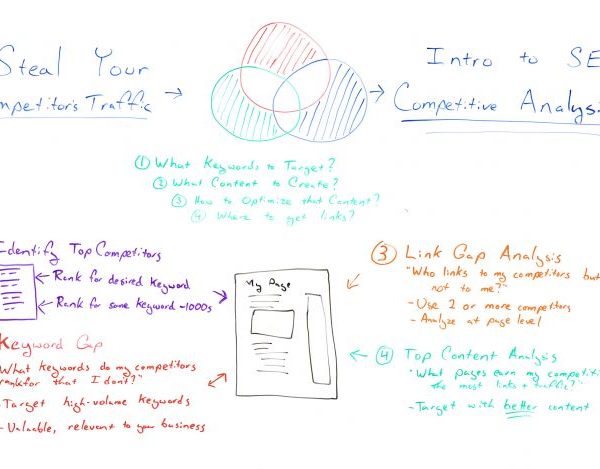 Steal Your
mpetitor's Traffic
Intro to SE
Competitive Analysis
① What Keywords to Target?
② What Content to Create?
③ How to Optimize that Content?
④ Where to get links?
Identify Top Competitors
Rank for desired keyword
Rank for same keyword ~1000s
Keyword Gap
What keywords do my competitors
rank for that I don't?"
Target high-volume keywords
- Valuable, relevant to your business
My Page
③ Link Gap Analysis
"Who links to my competitors but
not to me?"
- Use 2 or more competitors
- Analyze at page level
④ Top Content Analysis
"What pages earn my competiti
the most links + traffic?"
- Target with better content